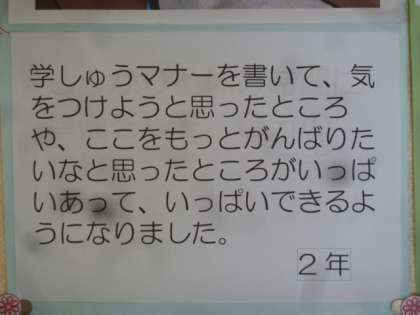 学しゅうマナーを書いて、気
をつけようと思ったところ
や、ここをもっとがんばりた
いなと思ったところがいっぱ
いあって、いっぱいできるよ
うになりました。
２年